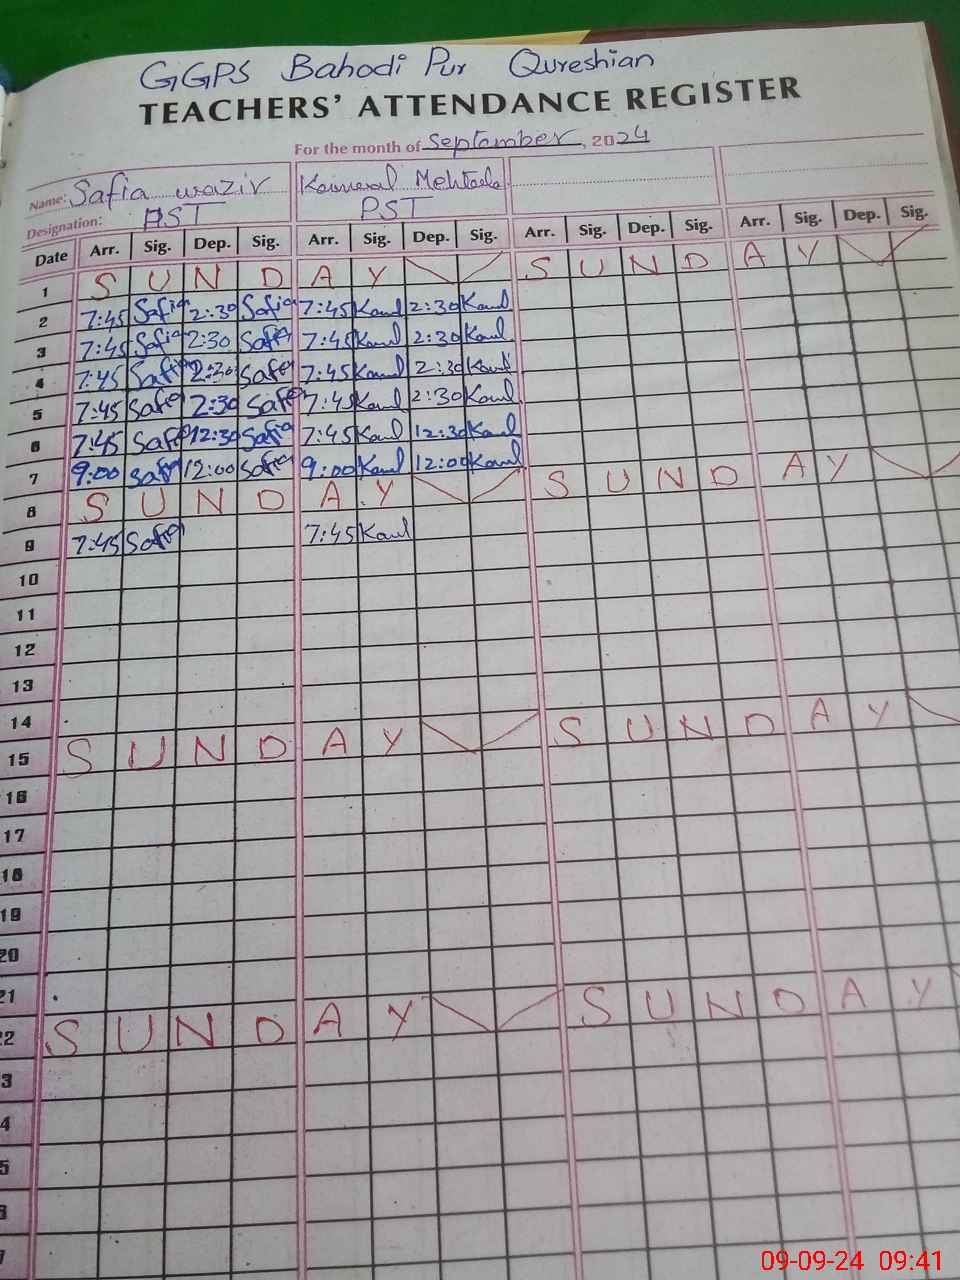 GGPS Bahodi Pur Qureshian
TEACHERS' ATTENDANCE REGISTER
For the month of September, 2024
Name: Safia wazir
Designation: PST
Date Arr. Sig. Dep. Sig. Arr. Sig. Dep. Sig. Arr. Sig. Dep. Sig. Arr. Sig. Dep. Sig.
1 S U N D A Y S U N D A Y
2 7:45 Safia 2:30 Safia 7:45 Kaul 2:30 Kaul
3 7:45 Safia 2:30 Safia 7:45 Kaul 2:30 Kaul
4 7:45 Safia 2:30 Safia 7:45 Kaul 2:30 Kaul
5 7:45 Safia 2:30 Safia 7:45 Kaul 2:30 Kaul
6 7:45 Safia 12:30 Safia 7:45 Kaul 12:30 Kaul
7 9:00 Safia 12:00 Safia 9:00 Kaul 12:00 Kaul S U N D A Y
8 S U N D A Y
9 7:45 Safia 7:45 Kaul
10
11
12
13
14 S U N D A Y
15 S U N D A Y
16
17
18
19
20
21 S U N D A Y
22 S U N D A Y
3
4
5
7
09-09-24 09:41